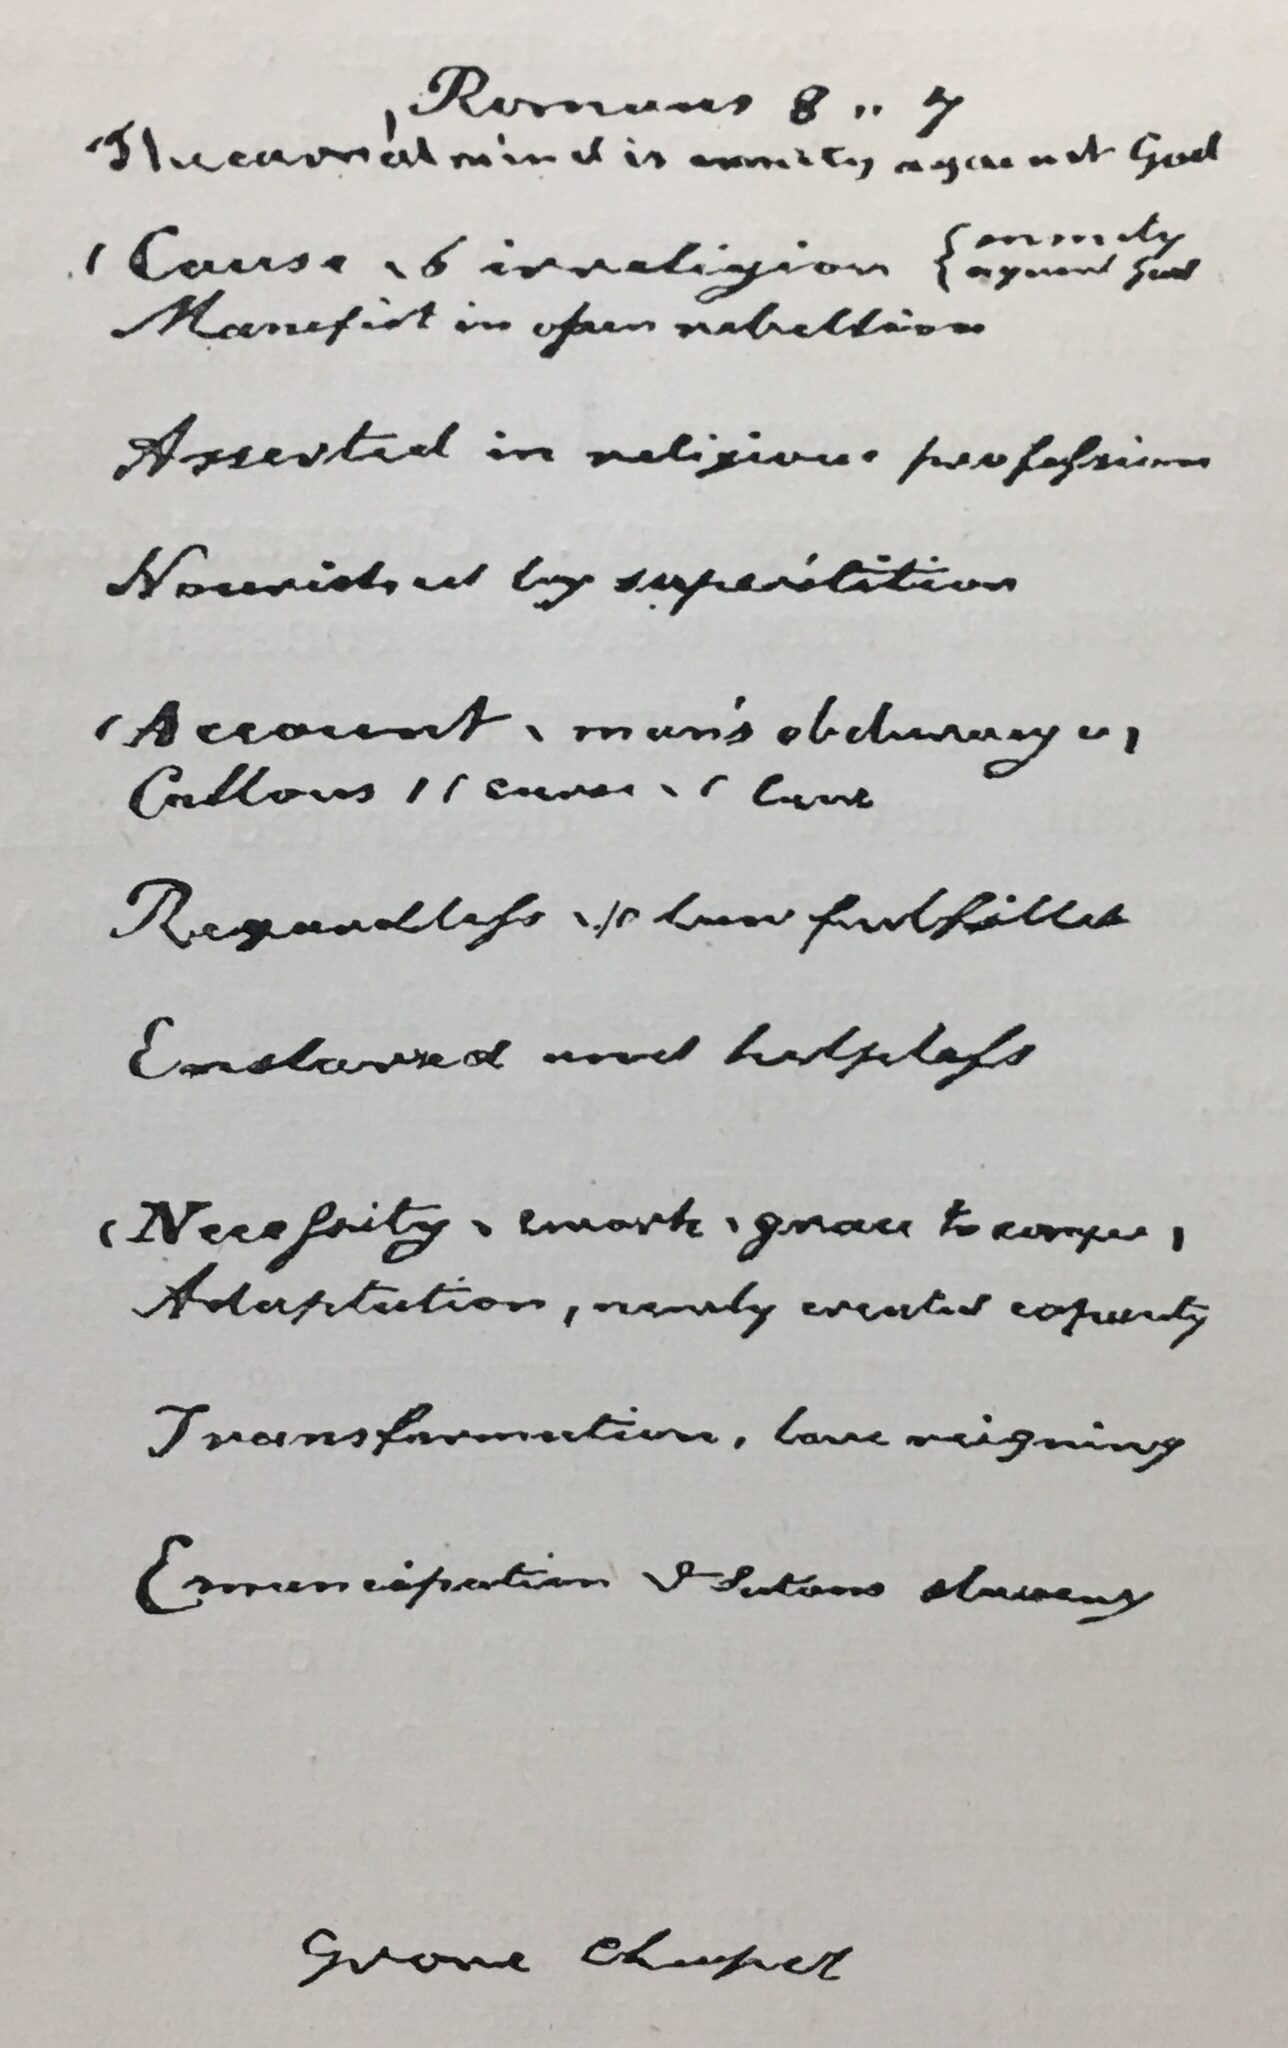 Romans 8 .. 7
The carnal mind is enmity against God
( Cause . 6 irreligion { enmity
{ against God
Manefist in open rebellion
Asserted in religious profession
Nourished by superstition
( Account . man's obduracy
Callous curse law
Regardless law fulfilled
Enslaved and helpless
( Necessity . work . grace to
Adaptation, newly created capacity
Transformation, love reigning
Emancipation Satans slavery
Grove Chapel